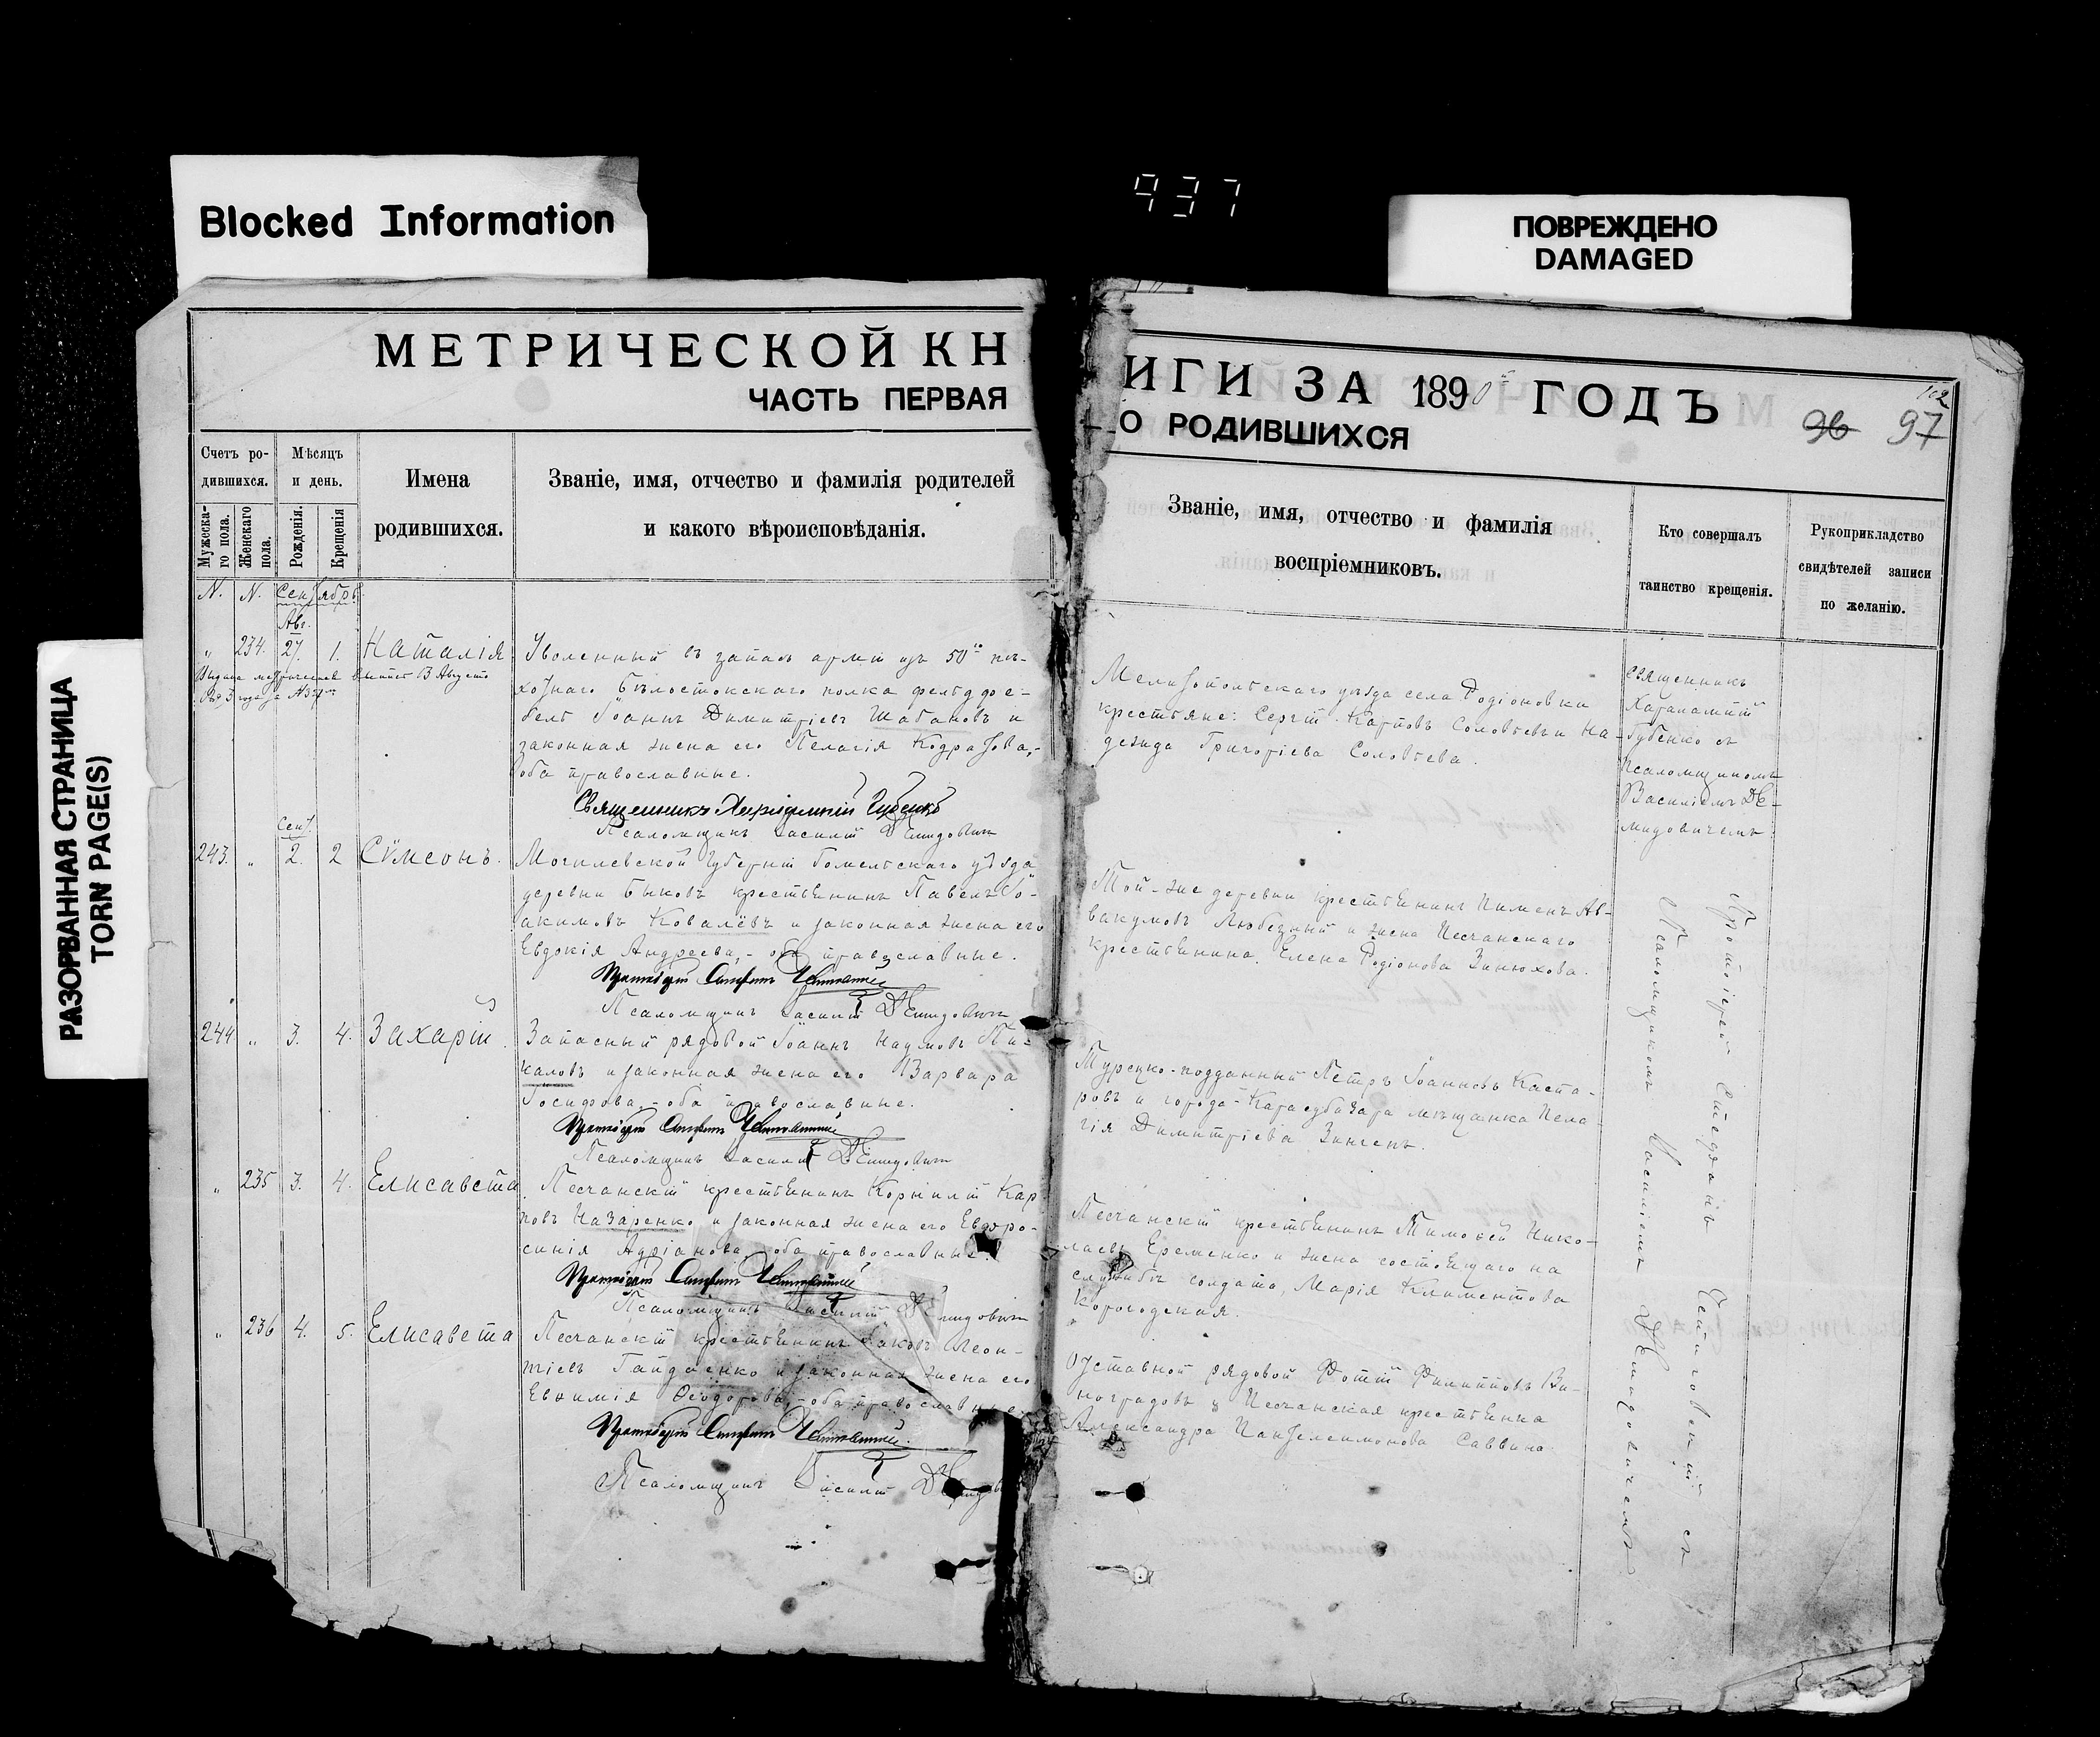 937
Blocked Information
ПОВРЕЖДЕНО
DAMAGED
РАЗОРВАННАЯ СТРАНИЦА
TORN PAGE(S)
МЕТРИЧЕСКОЙ КН
ЧАСТЬ ПЕРВАЯ
Счетъ ро-
дившихся.
Мужеска-
го пола.
Женскаго
пола.
Мѣсяцъ
и день.
Рожденія.
Крещенія
Имена
родившихся.
Званіе, имя, отчество и фамилія родителей
и какого вѣроисповѣданія.
N. N. Сентябрь
Авг.
" 234. 27. 1. Наталія
Уволенный въ запасъ арміи изъ 50го пѣ-
хотнаго Бѣлостокскаго полка фельдфе-
бель Іоаннъ Димитріевъ Шабановъ и
законная жена его Пелагія Кодратова,-
оба православные.
Священникъ Харалампій Губенко
Псаломщикъ Василій Демидовичъ
Сент.
243. " 2. 2 Сѵмеонъ.
Могилевской губерніи Гомельскаго уѣзда
деревни Быковъ крестьянинъ Павелъ Іо-
акимовъ Ковалёвъ и законная жена его
Евдокія Андреева,- оба православные.
Протоіерей Стефанъ
Псаломщикъ Василій Демидовичъ
244 " 3. 4. Захарій.
Запасный рядовой Іоаннъ Наумовъ Пи-
каловъ и законная жена его Варвара
Іосифова,- оба православные.
Протоіерей Стефанъ
Псаломщикъ Василій Демидовичъ
" 235 3. 4. Елисавета.
Песчанскій крестьянинъ Корнилій Кар-
повъ Назаренко и законная жена его Евфро-
синія Адріанова, оба православные.
Протоіерей Стефанъ
Псаломщикъ Василій Демидовичъ
" 236 4. 5. Елисавета
Песчанскій крестьянинъ Іаковъ Леон-
тіевъ Гайдаенко и законная жена его
Евѳимія Ѳеодорова,- оба православные
Протоіерей Стефанъ
Псаломщикъ Василій
ИГИ ЗА 1890й ГОДЪ
О РОДИВШИХСЯ
102
96 97
Званіе, имя, отчество и фамилія
воспріемниковъ.
Кто совершалъ
таинство крещенія.
Рукоприкладство
свидѣтелей записи
по желанію.
Мелитопольскаго уѣзда села Родіоновки
крестьяне: Сергій Карповъ Соловьевъ и На-
дежда Григоріева Соловьева.
Священникъ
Харалампій
Губенко съ
Псаломщикомъ
Василіемъ Де-
мидовичемъ
Той-же деревни крестьянинъ Пименъ Ав-
вакумовъ Любезный и жена Песчанскаго
крестьянина Елена Родіонова Зинюхова.
Турецко-подданный Петръ Іоанновъ Каста-
ровъ и города Карасубазара мѣщанка Пела-
гія Димитріева Зинченъ.
Песчанскій крестьянинъ Тимоѳей Нико-
лаевъ Еременко и жена состоящаго на
службѣ солдата, Марія Климентова
Когогодская.
Отставной рядовой Фотій Филипповъ Ви-
ноградовъ и Песчанская крестьянка
Александра Пантелеимонова Саввина.
Протоіерей Стефанъ съ
Псаломщикомъ Василіемъ Демидовичемъ